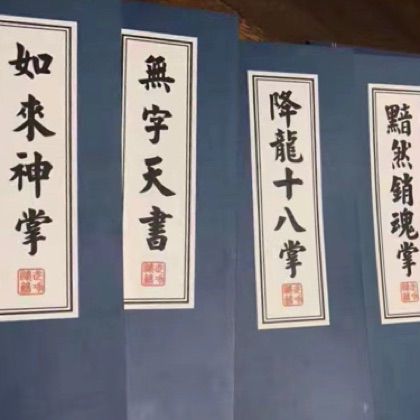 如來神掌
無字天書
降龍十八掌
黯然銷魂掌